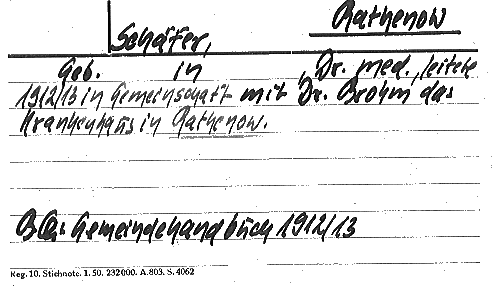 Rathenow
Schäfer,
Geb. in , Dr. med., leitete
1912/13 in Gemeinschaft mit Dr. Brohm das
Krankenhaus in Rathenow.
Gemeindehandbuch 1912/13
Reg. 10. Stichnote. 1. 50. 232000. A. 803. S. 4062